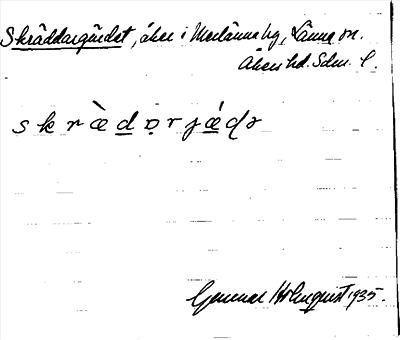 Skräddargärdet, åker i Merlänna by, Länna sn.
Åkers hd. Sdm. l.
s k r æ̀ d ɒ r j ǽ ɖ ə
Gunnar Holmquist 1935.